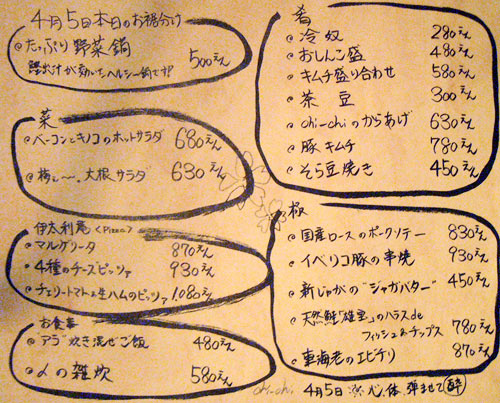 4月5日本日のお福分け
たっぷり野菜鍋 500えん
出汁が効いたヘルシー鍋です!!
菜
ベーコンとキノコのホットサラダ 680えん
梅し〜、大根サラダ 630えん
伊太利庵<Pizza>
マルゲリータ 870えん
4種のチーズピッツァ 930えん
チェリートマトと生ハムのピッツァ 1.080えん
お食事
アラ炊き混ぜご飯 480えん
〆の雑炊 580えん
肴
冷奴 280えん
おしんこ盛 480えん
キムチ盛り合わせ 580えん
茶豆 300えん
chi-chiのからあげ 630えん
豚キムチ 780えん
そら豆焼き 450えん
極
国産ロースのポークソテー 830えん
イベリコ豚の串焼 930えん
新じゃがの"ジャガバター" 450えん
天然鮭「雄宝」のハラスde
フィッシュ&チップス 780えん
車海老のエビチリ 870えん
chi-chi
4月5日 心、体、弾ませて酔